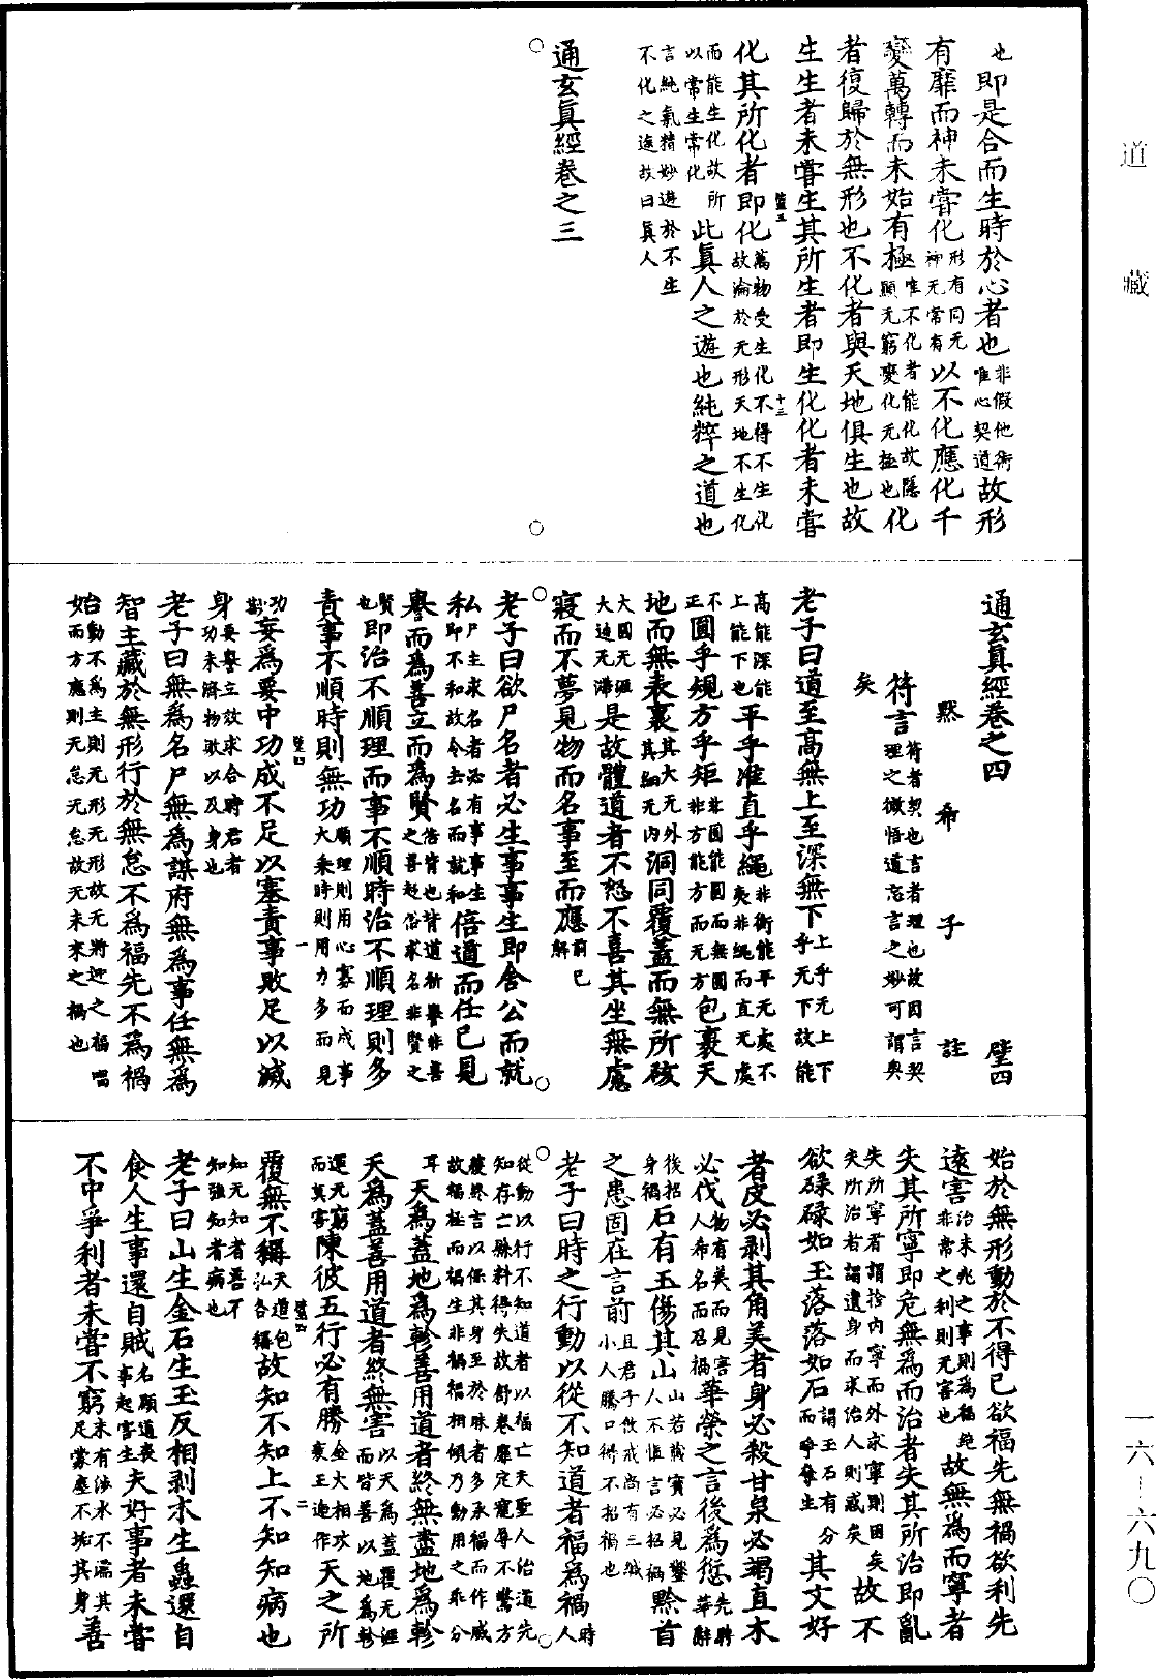 道藏
也即是合而生時於心者也非假他術唯心契道故形
有靡而神未嘗化形有同无神无常有以不化應化千
變萬轉而未始有極唯不化者能化故隱顯无窮變化无極也化
者復歸於無形也不化者與天地俱生也故
生生者未嘗生其所生者即生化化者未嘗
化其所化者即化萬物受生化不得不生化故淪於无形天地不生化
而能生化故所以常生常化此真人之遊也純粹之道也
言純氣精妙遊於不生不化之途故曰真人
通玄真經卷之三
通玄真經卷之四 壁四
默希子註
符言符者契也言者理也故因言契理之微悟道忘言之妙可謂奥
矣
老子曰道至高無上至深無下上乎无上下乎无下故能
高能深能上能下也平乎准直乎繩非衡能平无處不夷非繩而直无處
不正圓乎規方乎矩非圓能圓而無圓非方能方而无方包裹天
地而無表裏其大无外其細无内洞同覆蓋而無所硋
大圓无涯大迪无滞是故體道者不怒不喜其坐無慮
寢而不夢見物而名事至而應前已解
老子曰欲尸名者必生事事生即舍公而就
私尸主求名者必有事事生即不和故令去名而就和倍道而任己見
譽而為善立而為賢倍背也背道於譽非善之善起俗求名非賢之
賢也即治不順理而事不順時治不順理則多
責事不順時則無功順理則用心寡而成事大乘時則用力多而見
功尠妄為要中功成不足以塞責事敗足以滅
身要譽立故求合時君者功未濟物敗以及身也
老子曰無為名尸無為謀府無為事任無為
智主藏於無形行於無怠不為福先不為禍
始動不為主則无形无形故无將迎之福唱而方應則无怠无怠故无未來之禍也
始於無形動於不得已欲福先無禍欲利先
遠害治未兆之事則為福純非常之利則无害也故無為而寧者
失其所寧即危無為而治者失其所治即亂
失所寧者謂捨内寧而外求寧則困矣失所治者謂遺身而求治人則惑矣故不
欲碌碌如玉落落如石謂玉石有分而爭奪生其文好
者皮必剥其角美者身必殺甘泉必竭直木
必伐物有美而見害人希名而召禍華榮之言後為愆華辭先聘
後招身禍石有玉傷其山山若藏寳必見鑿人不慎言必招禍黔首
之患固在言前且君子攸戒尚有三緘小人騰口得不招禍也
老子曰時之行動以從不知道者福為禍時人
從動以行不知道者以福亡夫聖人治道先知存亡縣料得失故舒卷靡定寵辱不驚方
獲終吉以保其身至於昧者多承福而作威故福極而禍生非禍福相傾乃動用之乖分
耳天為蓋地為軫善用道者終無盡地為軫
天為蓋善用道者終無害以天為蓋覆无涯而皆善以地為軫
運无窮而莫害陳彼五行必有勝金火相攻衰王迭作天之所
覆無不稱天道包弘各稱故知不知上不知知病也
知无知者善不知強知者病也
老子曰山生金石生玉反相剥木生蟲還自
食人生事還自賊名顯道喪事起害生夫好事者未嘗
不中爭利者未嘗不窮未有涉水不濡其足蒙塵不垢其身善
一六－六九〇